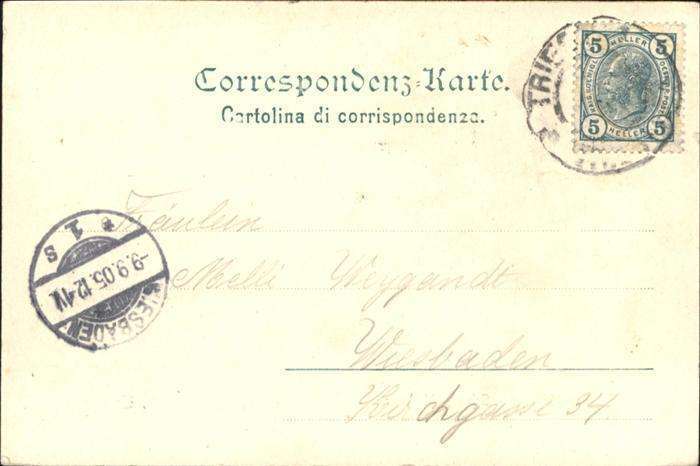 Correspondenz-Karte.
Cartolina di corrispondenza.
TRIES
5 HELLER 5
5 HELLER 5
Fräulein
Melli Weygandt
Wiesbaden
Kirchgasse 34
1 s
-9.9.05.12-1V.
WIESBADEN